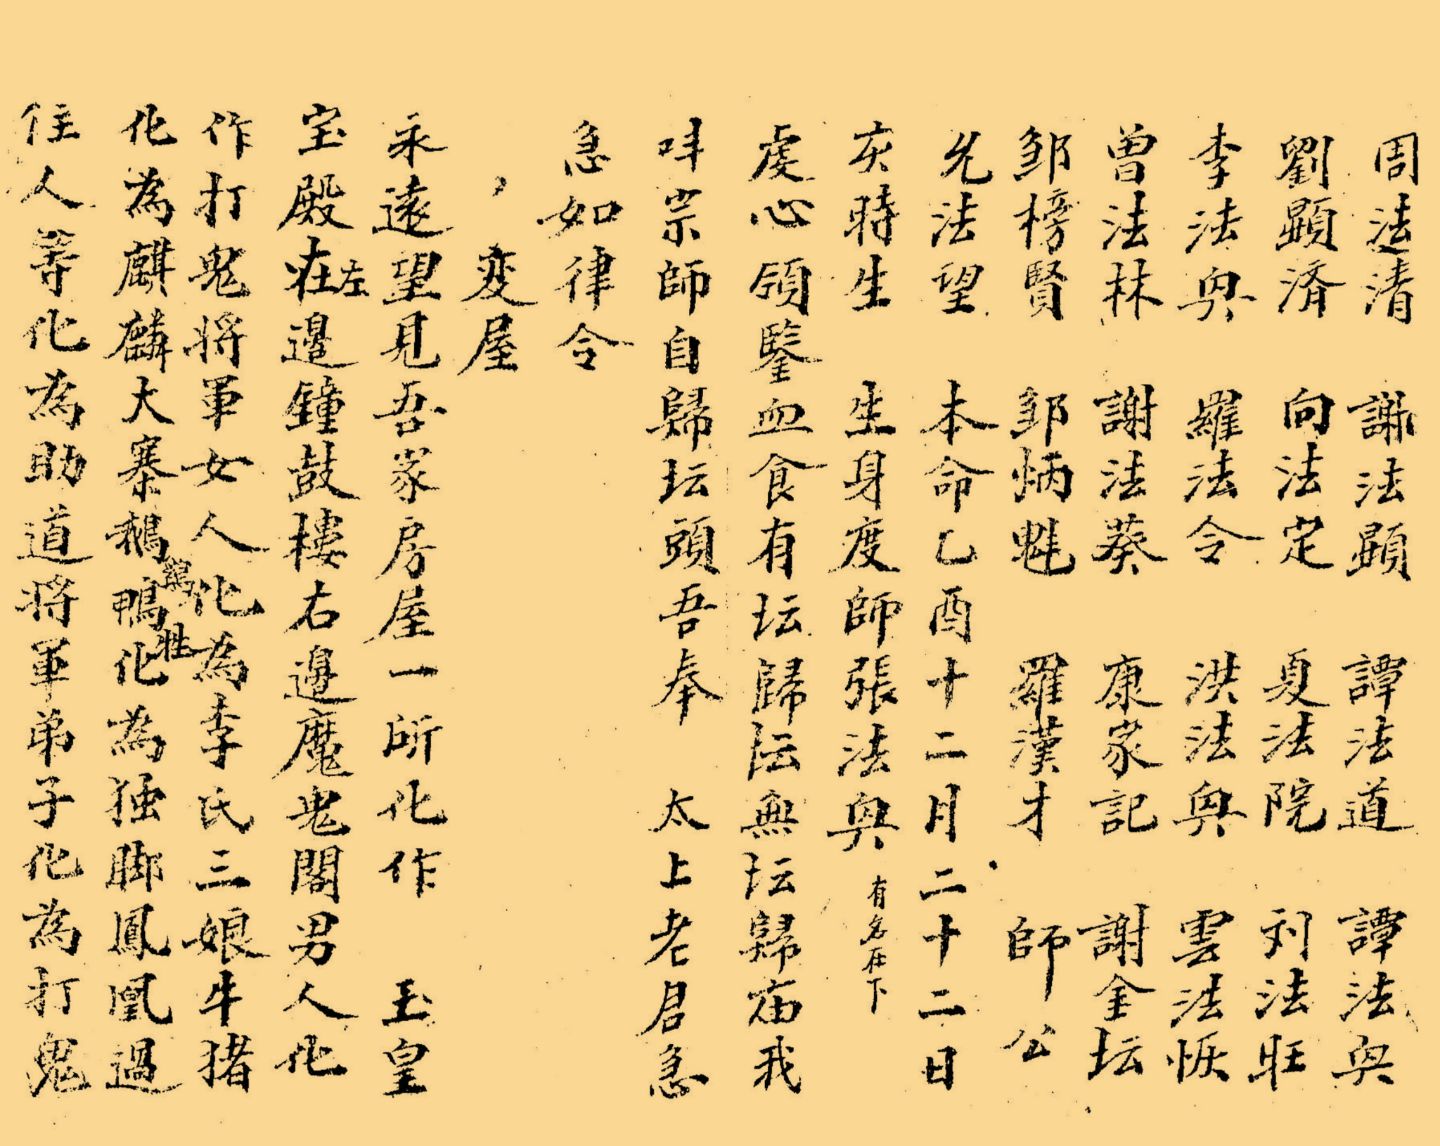 周法清 謝法顕 譚法道 譚法奥
劉顕済 向法定 夏法院 刘法旺
李法奥 羅法令 洪法奥 雲法恢
曾法林 謝法葵 康家記 謝金坛
邹榜賢 邹炳魁 羅漢才 師公
允法望 本命乙酉十二月二十二日
亥時生 生身度師張法奥 有名在下
虔心領鑒血食有坛歸坛無坛歸庙我
吽宗師自歸坛頭吾奉 太上老君急
急如律令
変屋
永遠望見吾家房屋一所化作 玉皇
宝殿在左邊鐘鼓樓右邊魔鬼閣男人化
作打鬼将軍女人化為李氏三娘牛猪
化為麒麟大寨鵝鴨鷄牲化為独脚鳳凰過
往人等化為助道将軍弟子化為打鬼